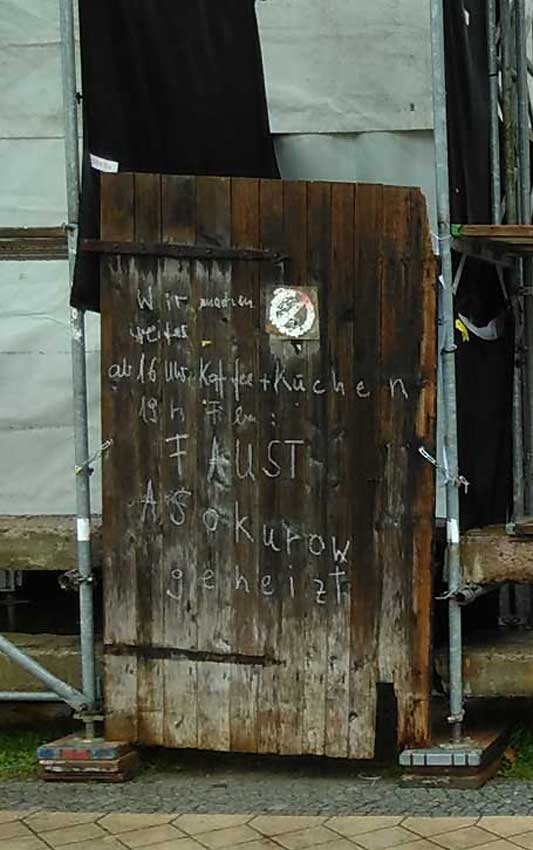 Wir machen
weiter
ab 16 Uhr Kaffee + Kuchen
19 h Film:
FAUST
A Sokurow
geheizt